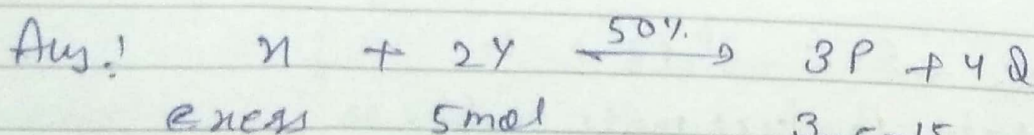 Ans! x + 2Y 50% 3P + 4Q
exess 5mol 3